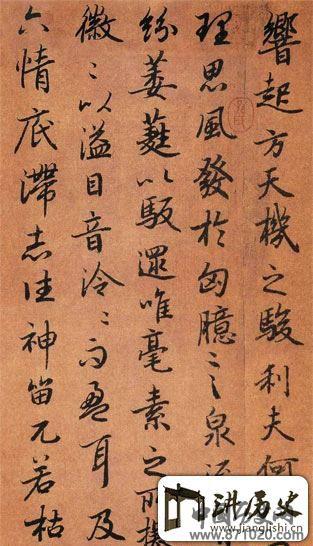 響起方天機之駿利夫何
理思風發於匈臆言泉流
紛萎蕤以馺遝唯毫素之所擬
徽〻以溢目音泠〻而盈耳及
六情底滯志往神留兀若枯
讲历史
www.jianglishi.cn
www.871020.com